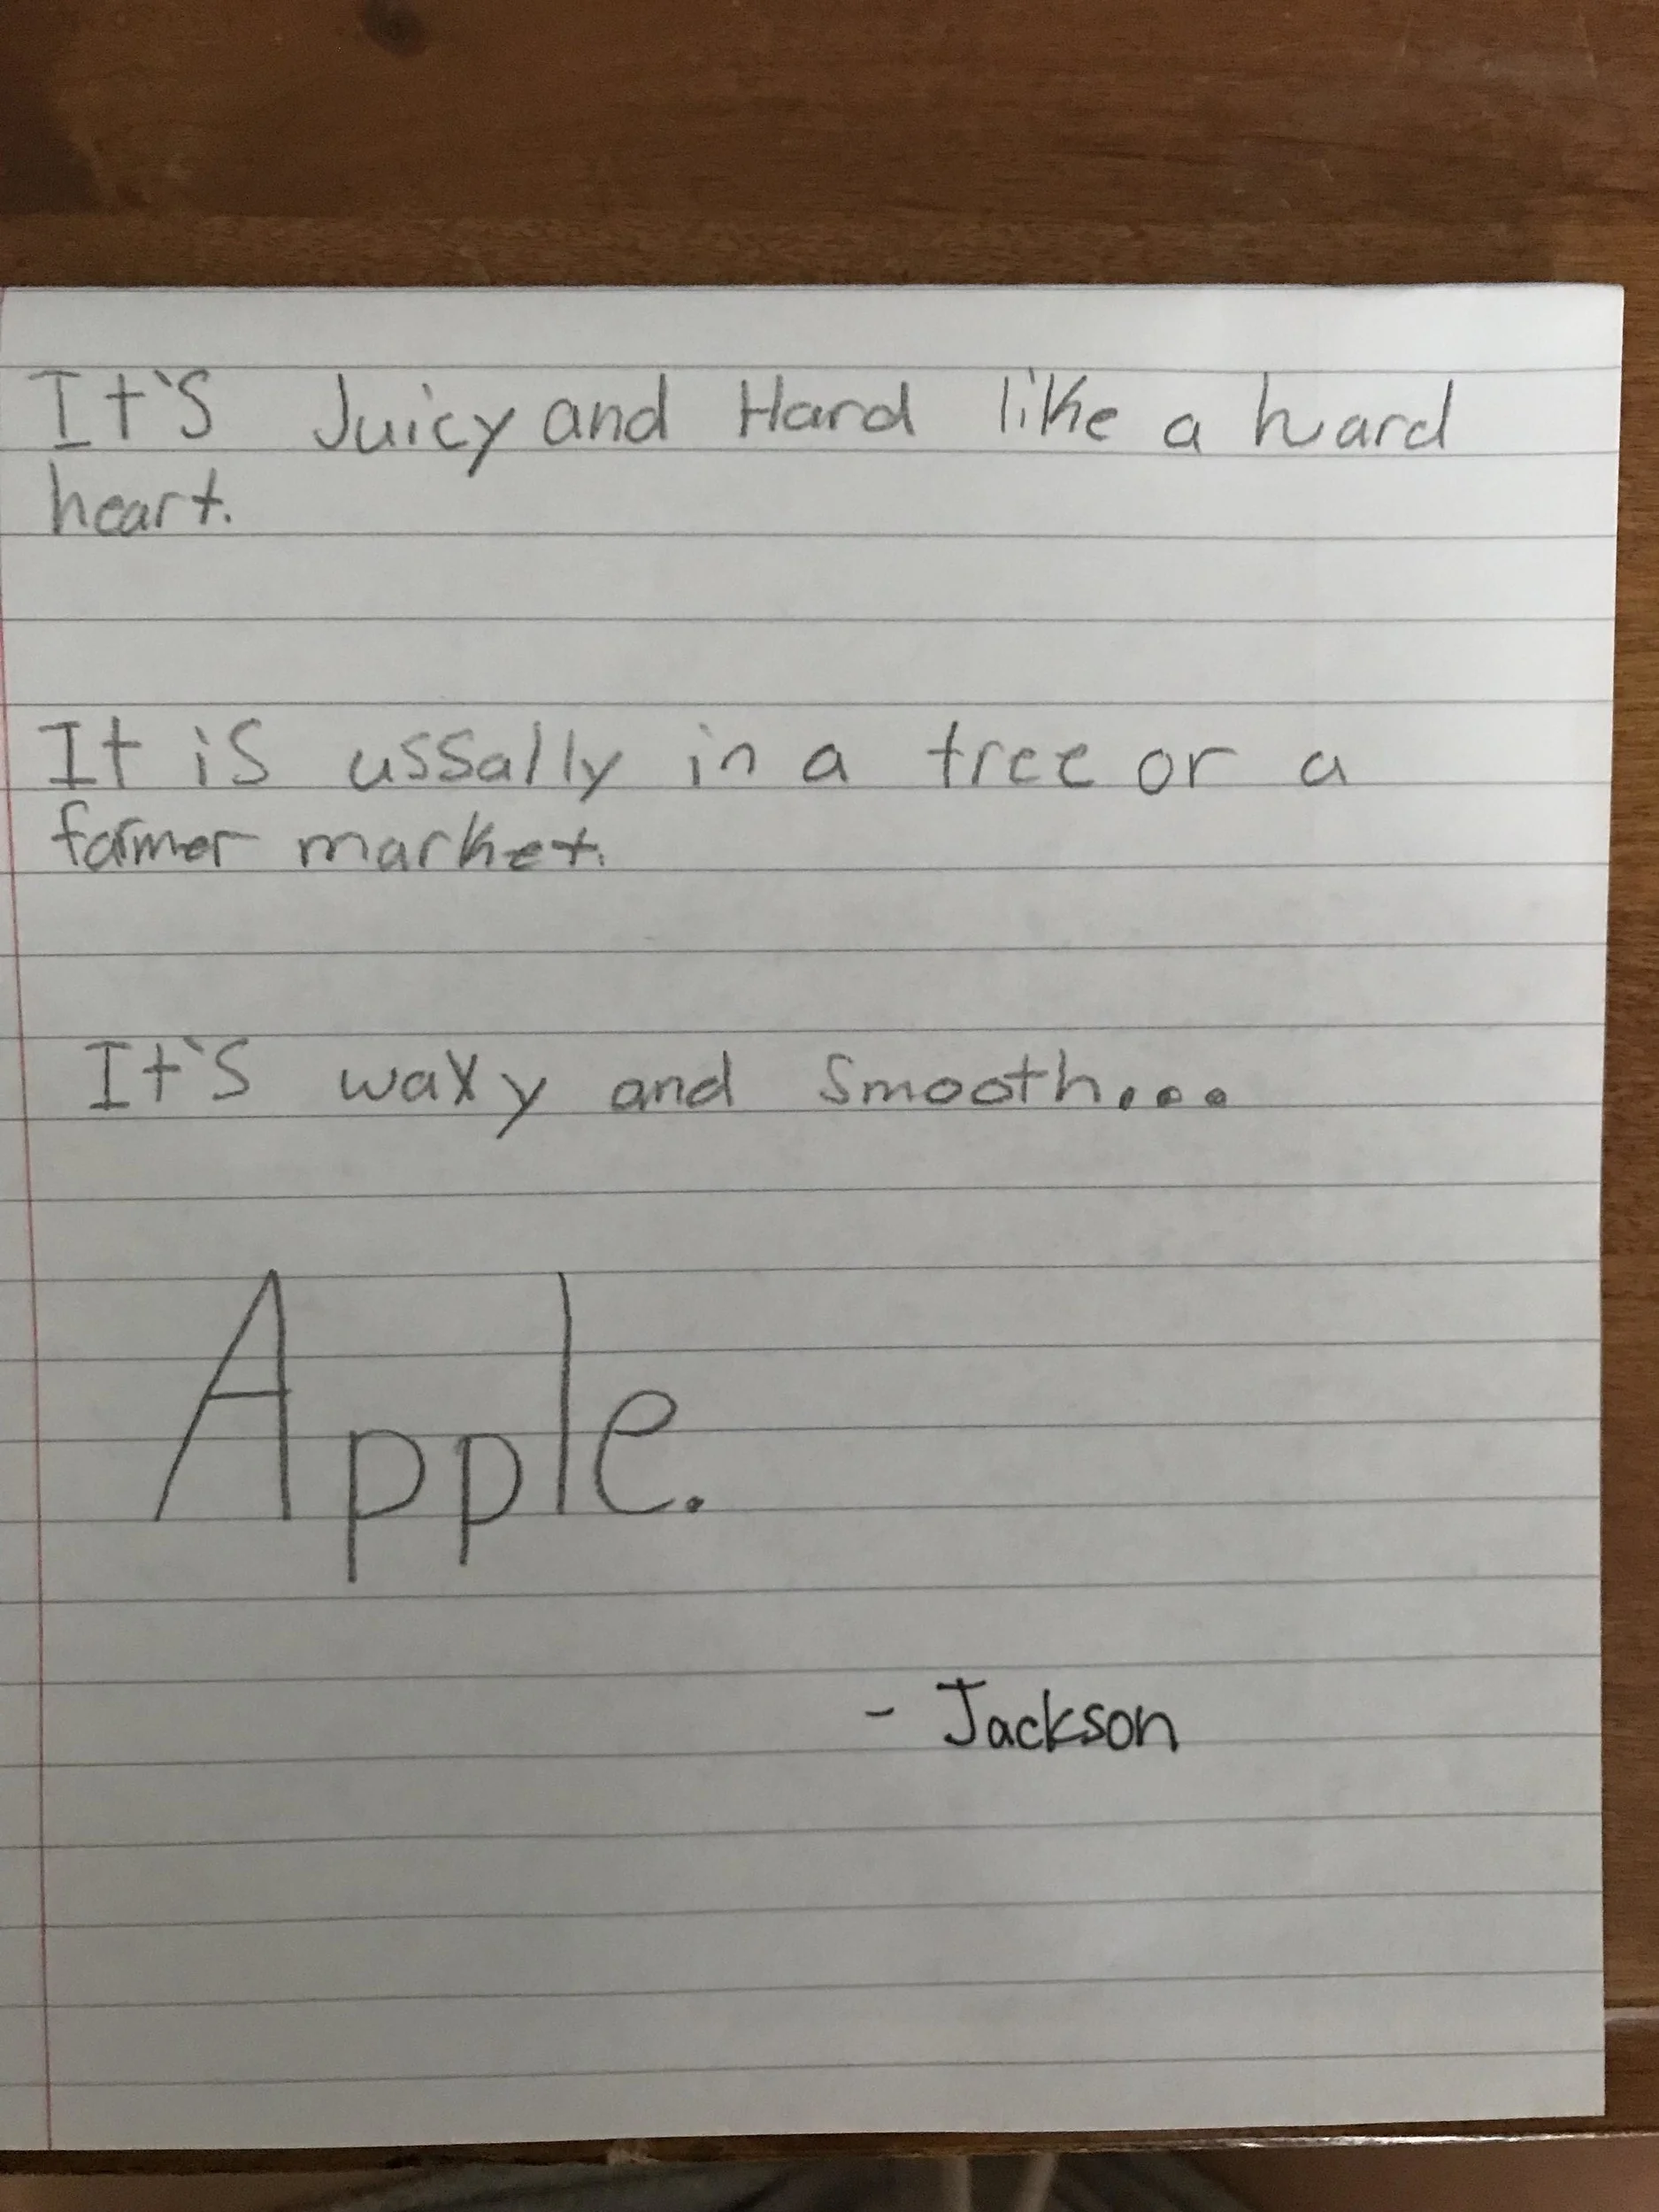 It's Juicy and Hard like a hard
heart.
It is ussally in a tree or a
farmer market.
It's waxy and smooth...
Apple.
- Jackson